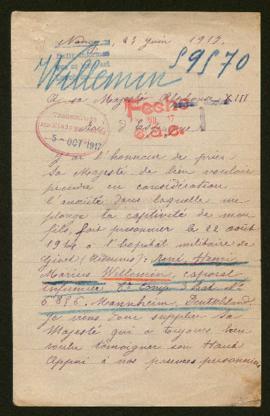 Nancy, 23 juin 1917.
59570
Willemin
A sa Majesté Alphonse XIII
Roi d'Espagne
Fecha
JUL 17
5 - OCT 1917
J'ai l'honneur de prier
Sa Majesté de bien vouloir
prendre en considération
l'anxiété dans laquelle me
plonge la captivité de mon
fils, fait prisonnier le 22 août
1914 à l'hôpital militaire de
Givet (Ardennes): René, Henri
Marius Willemin, caporal
infirmier
Mannheim, Deutschland
Je viens donc supplier sa
Majesté qui a toujours bien
voulu témoigner son Haut
Appui à nos pauvres prisonniers